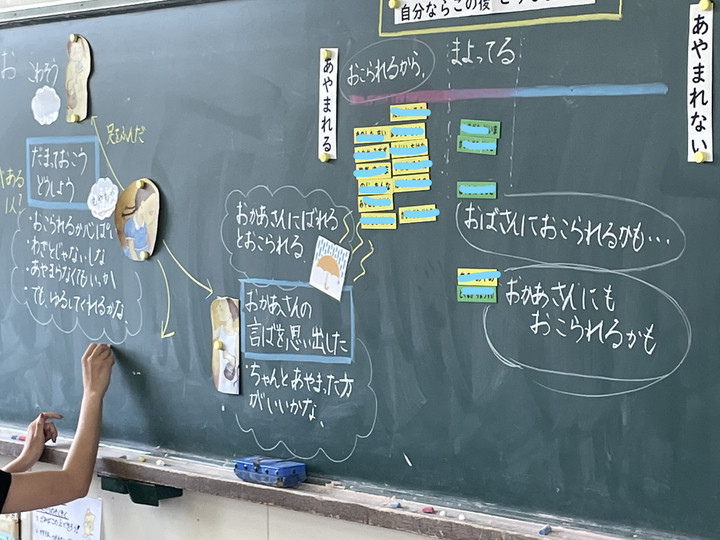 自分ならこの後
お こわそう
足をふんだ
だまっておこう
どうしよう
ある
1人?
・おこられるか心ぱい。
・わざとじゃないしな
・あやまらなくてもいいか
・でも、ゆるしてくれるかな。
おかあさんにばれる
とおこられる
おかあさんの
言ばを思い出した
・ちゃんとあやまった方
がいいかな。
あやまれる
おこられるから、
まよってる
あやまれない
おばさんにおこられるかも…
おかあさんにも
おこられるかも